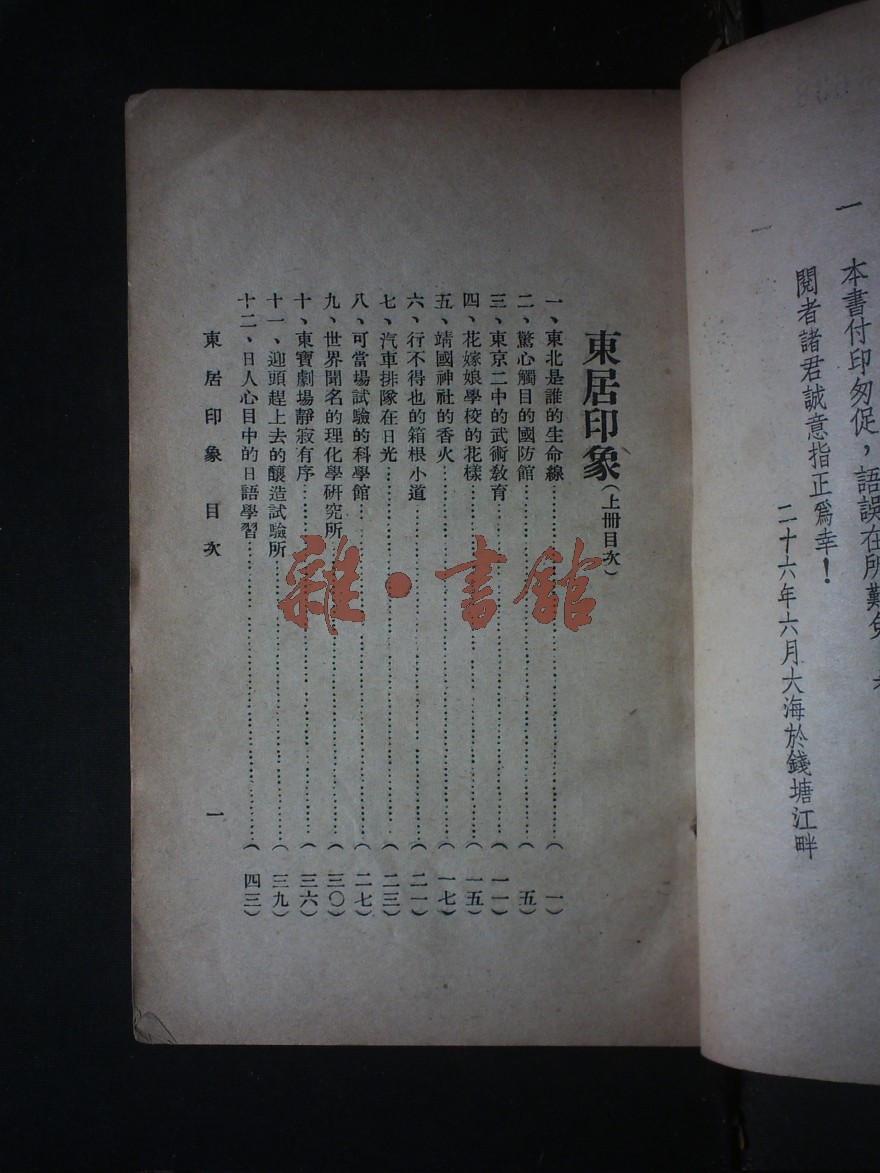 一
本書付印匆促，語誤在所難免
閱者諸君誠意指正爲幸！
二十六年六月大海於錢塘江畔
一
東居印象（上册目次）
一、東北是誰的生命線……（一）
二、驚心觸目的國防館……（五）
三、東京二中的武術教育……（一一）
四、花嫁娘學校的花樣……（一五）
五、靖國神社的香火……（一七）
六、行不得也的箱根小道……（二一）
七、汽車排隊在日光……（二三）
八、可當場試驗的科學館……（二七）
九、世界聞名的理化學研究所……（三〇）
十、東寶劇場靜寂有序……（三六）
十一、迎頭趕上去的釀造試驗所……（三九）
十二、日人心目中的日語學習……（四三）
東居印象 目次 一
雜·書館